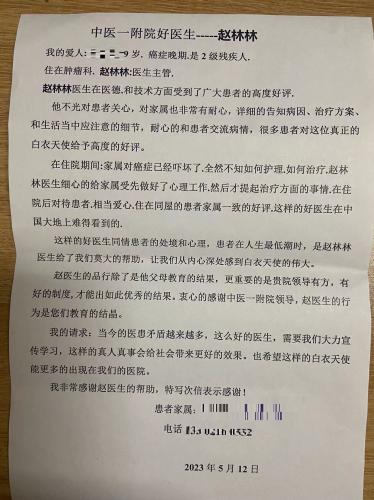 中医一附院好医生-----赵林林
我的爱人: 9岁. 癌症晚期.是2级残疾人.
住在肿瘤科. 赵林林:医生主管.
赵林林医生在医德,和技术方面受到了广大患者的高度好评。
他不光对患者关心，对家属也非常有耐心，详细的告知病因、治疗方案、
和生活当中应注意的细节，耐心的和患者交流病情，很多患者对这位真正的
白衣天使给于高度的好评。
在住院期间:家属对癌症已经吓坏了.全然不知如何护理,如何治疗,赵林
林医生细心的给家属受先做好了心理工作,然后才提起治疗方面的事情,在住
院后对待患者.相当爱心,住在同屋的患者家属一致的好评,这样的好医生在中
国大地上难得看到的.
这样的好医生同情患者的处境和心理，患者在人生最低潮时，是赵林林
医生给了我们莫大的帮助，让我们从内心深处感到白衣天使的伟大。
赵医生的品行除了是他父母教育的结果，更重要的是贵院领导有方，有
好的制度,才能出如此优秀的结果。衷心的感谢中医一附院领导，赵医生的行
为是您们教育的结晶。
我的请求：当今的医患矛盾越来越多，这么好的医生，需要我们大力宣
传学习，这样的真人真事会给社会带来更好的效果。也希望这样的白衣天使
能更多的出现在我们的医院。
我非常感谢赵医生的帮助，特写次信表示感谢！
患者家属：
电话
2023年5月12日